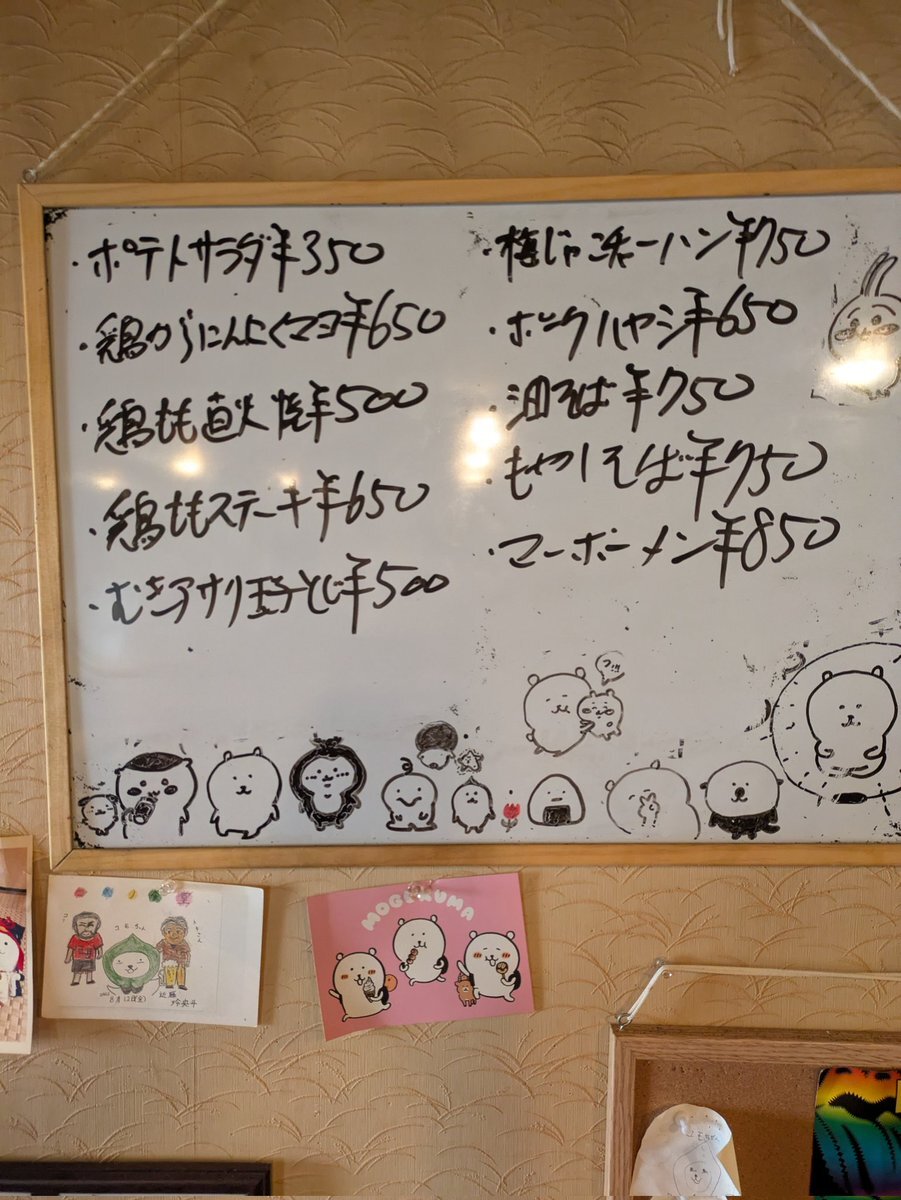 ・ポテトサラダ¥350
・鶏からにんにくマヨ¥650
・鶏もも直火焼¥500
・鶏ももステーキ¥650
・むきアサリ玉子とじ¥500
・梅じゃこチャーハン¥750
・ポークハヤシ¥650
・油そば¥750
・もやしそば¥750
・マーボーメン¥850
コモちゃん
8月12日(金)
近藤
MOGUKUMA